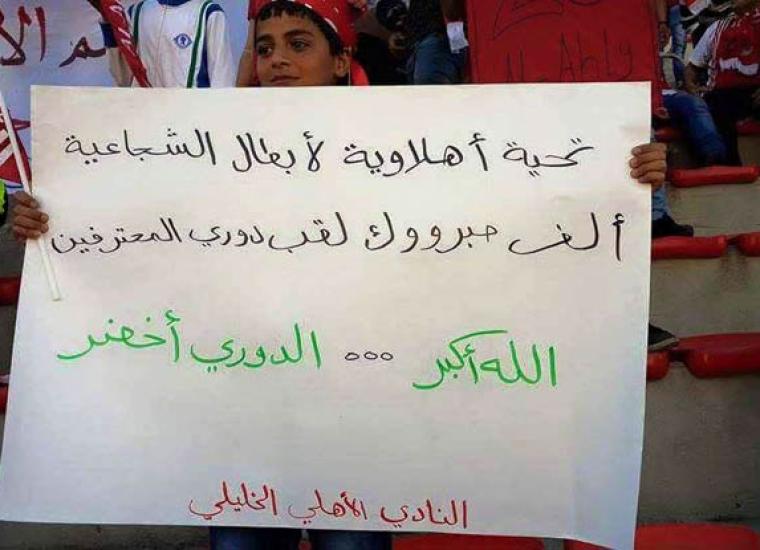 Al-Ahly
تحية أهلاوية لأبطال الشجاعية
ألف مبرووك لقب دوري المحترفين
الله أكبر ... الدوري أخضر
النادي الأهلي الخليلي